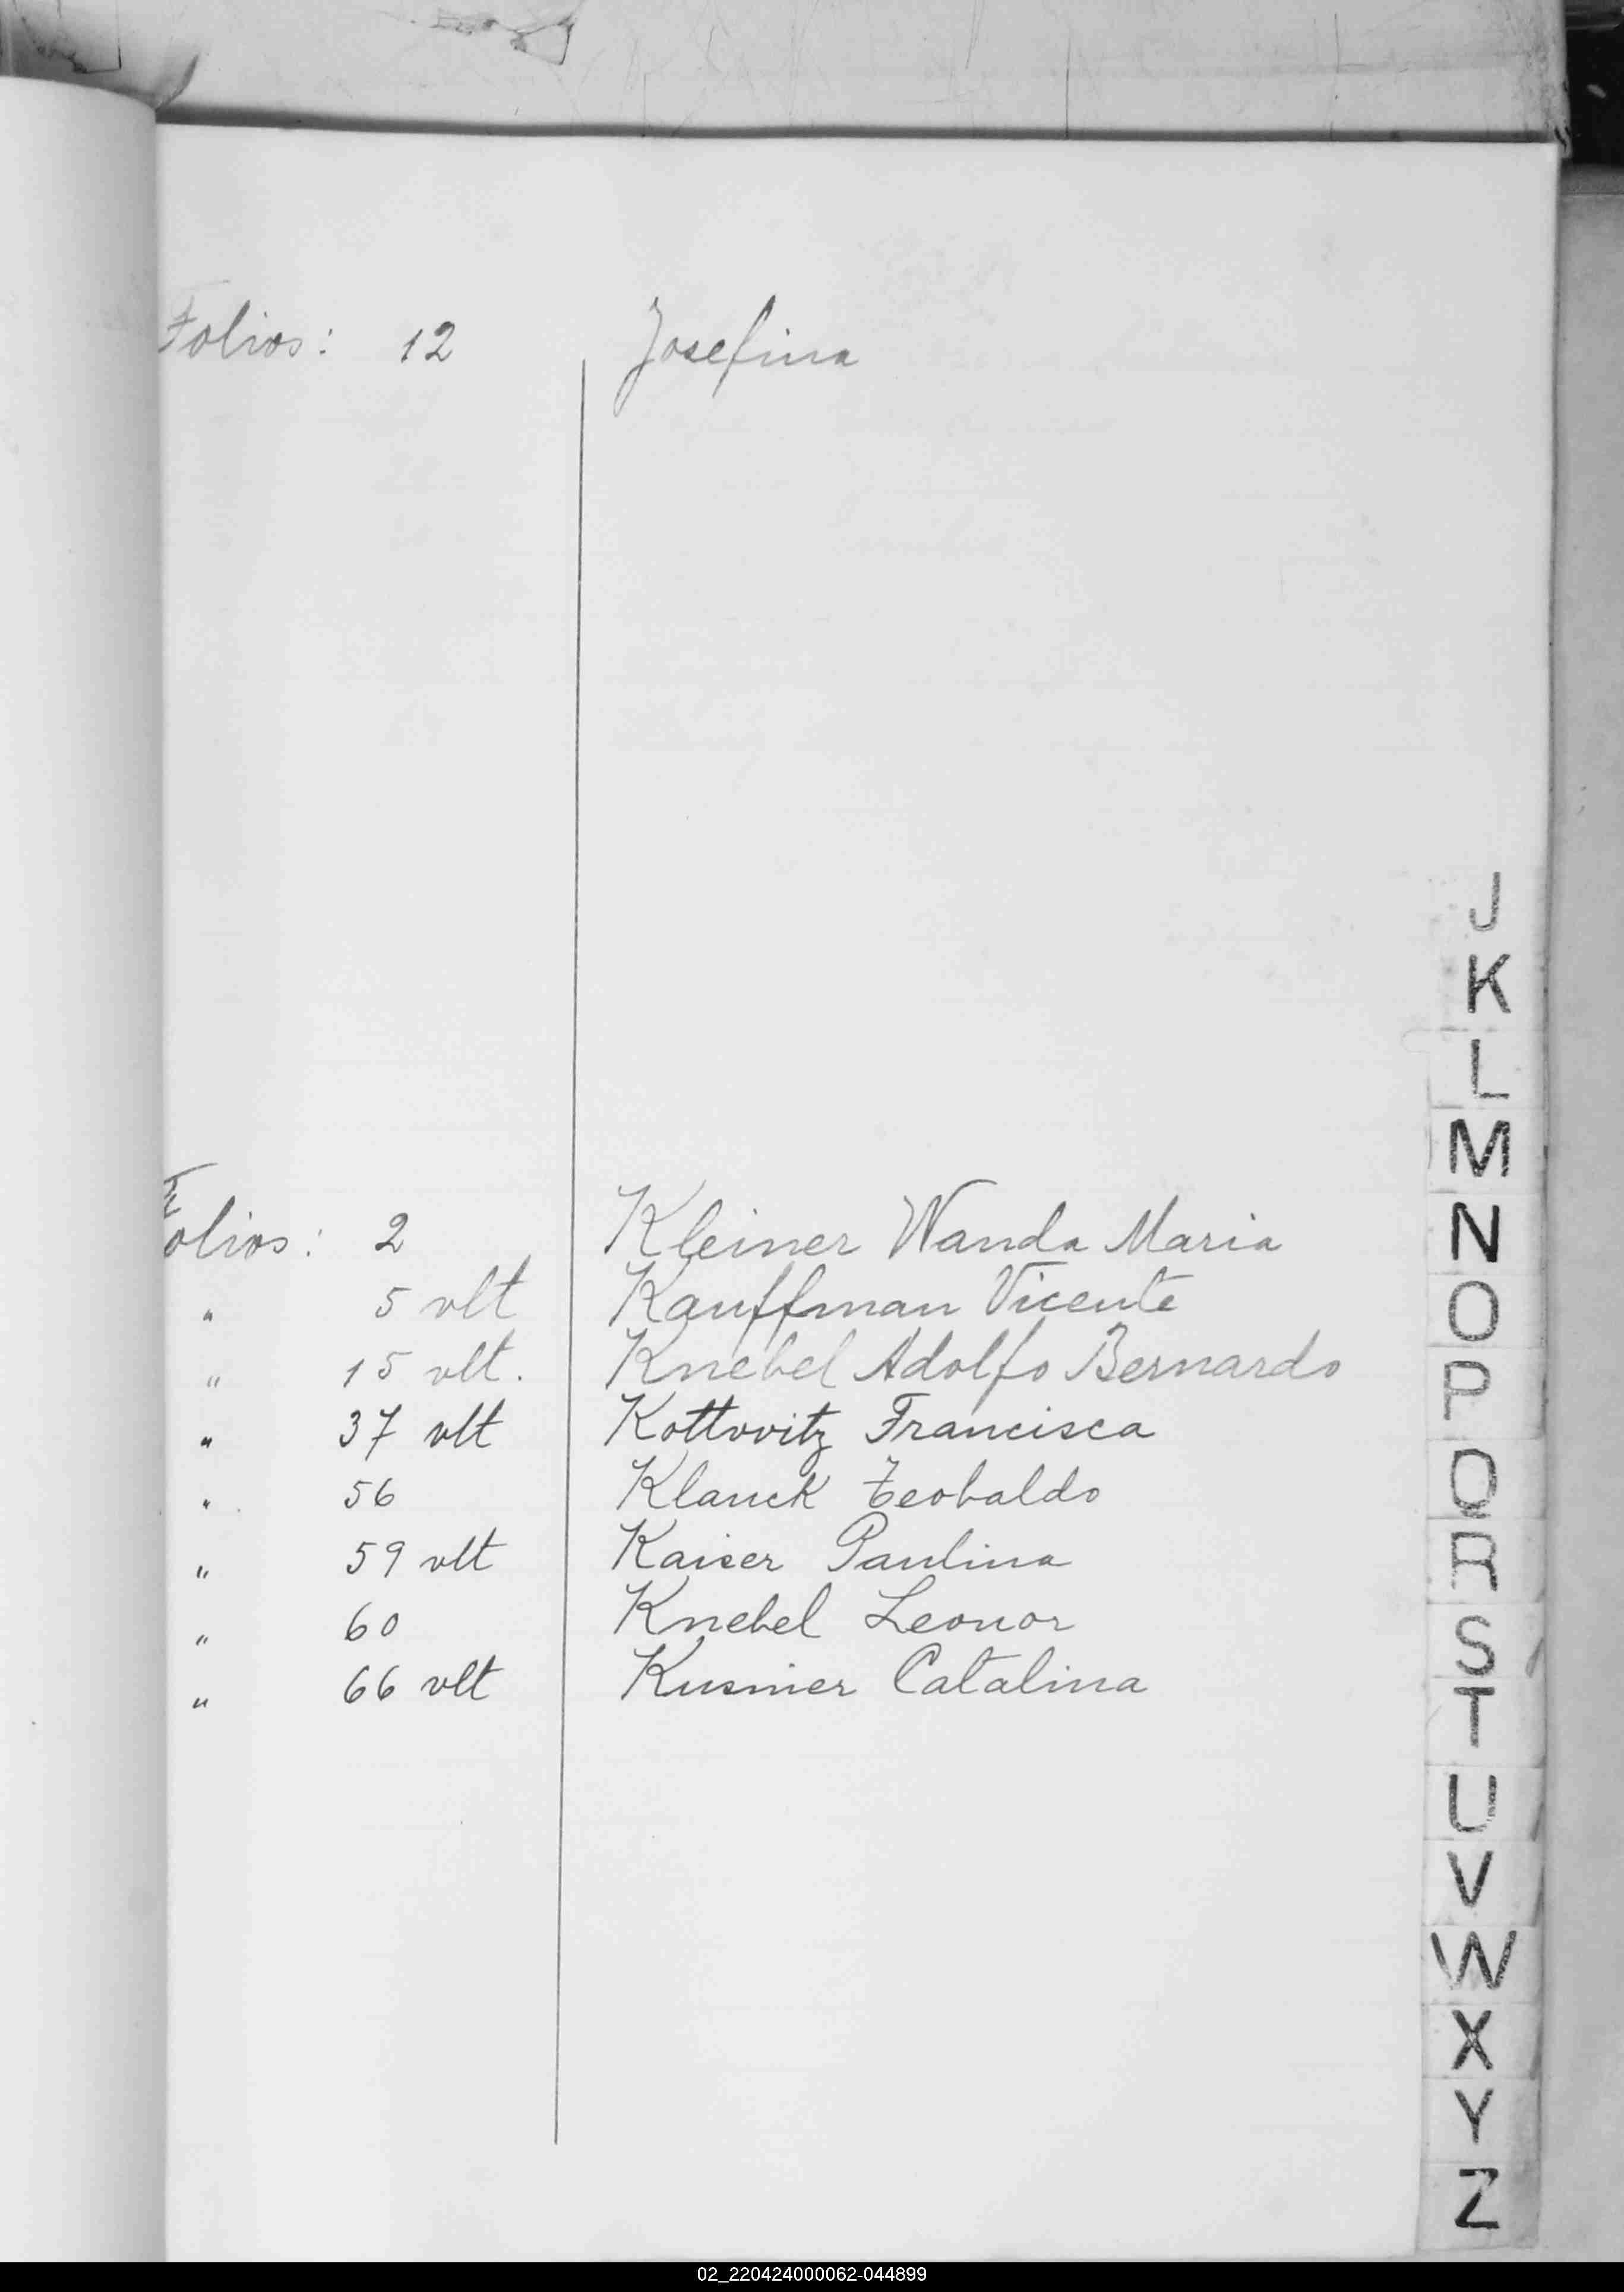 Folios: 12 Josefina
Folios: 2 Kleiner Wanda Maria
" 5 vlt Kauffman Vicente
" 15 vlt. Knebel Adolfo Bernardo
" 37 vlt Kottvitz Francisca
" 56 Klauck Teobaldo
" 59 vlt Kaiser Paulina
" 60 Knebel Leonor
" 66 vlt Kusmer Catalina
J
K
L
M
N
O
P
Q
R
S
T
U
V
W
X
Y
Z
02_220424000062-044899